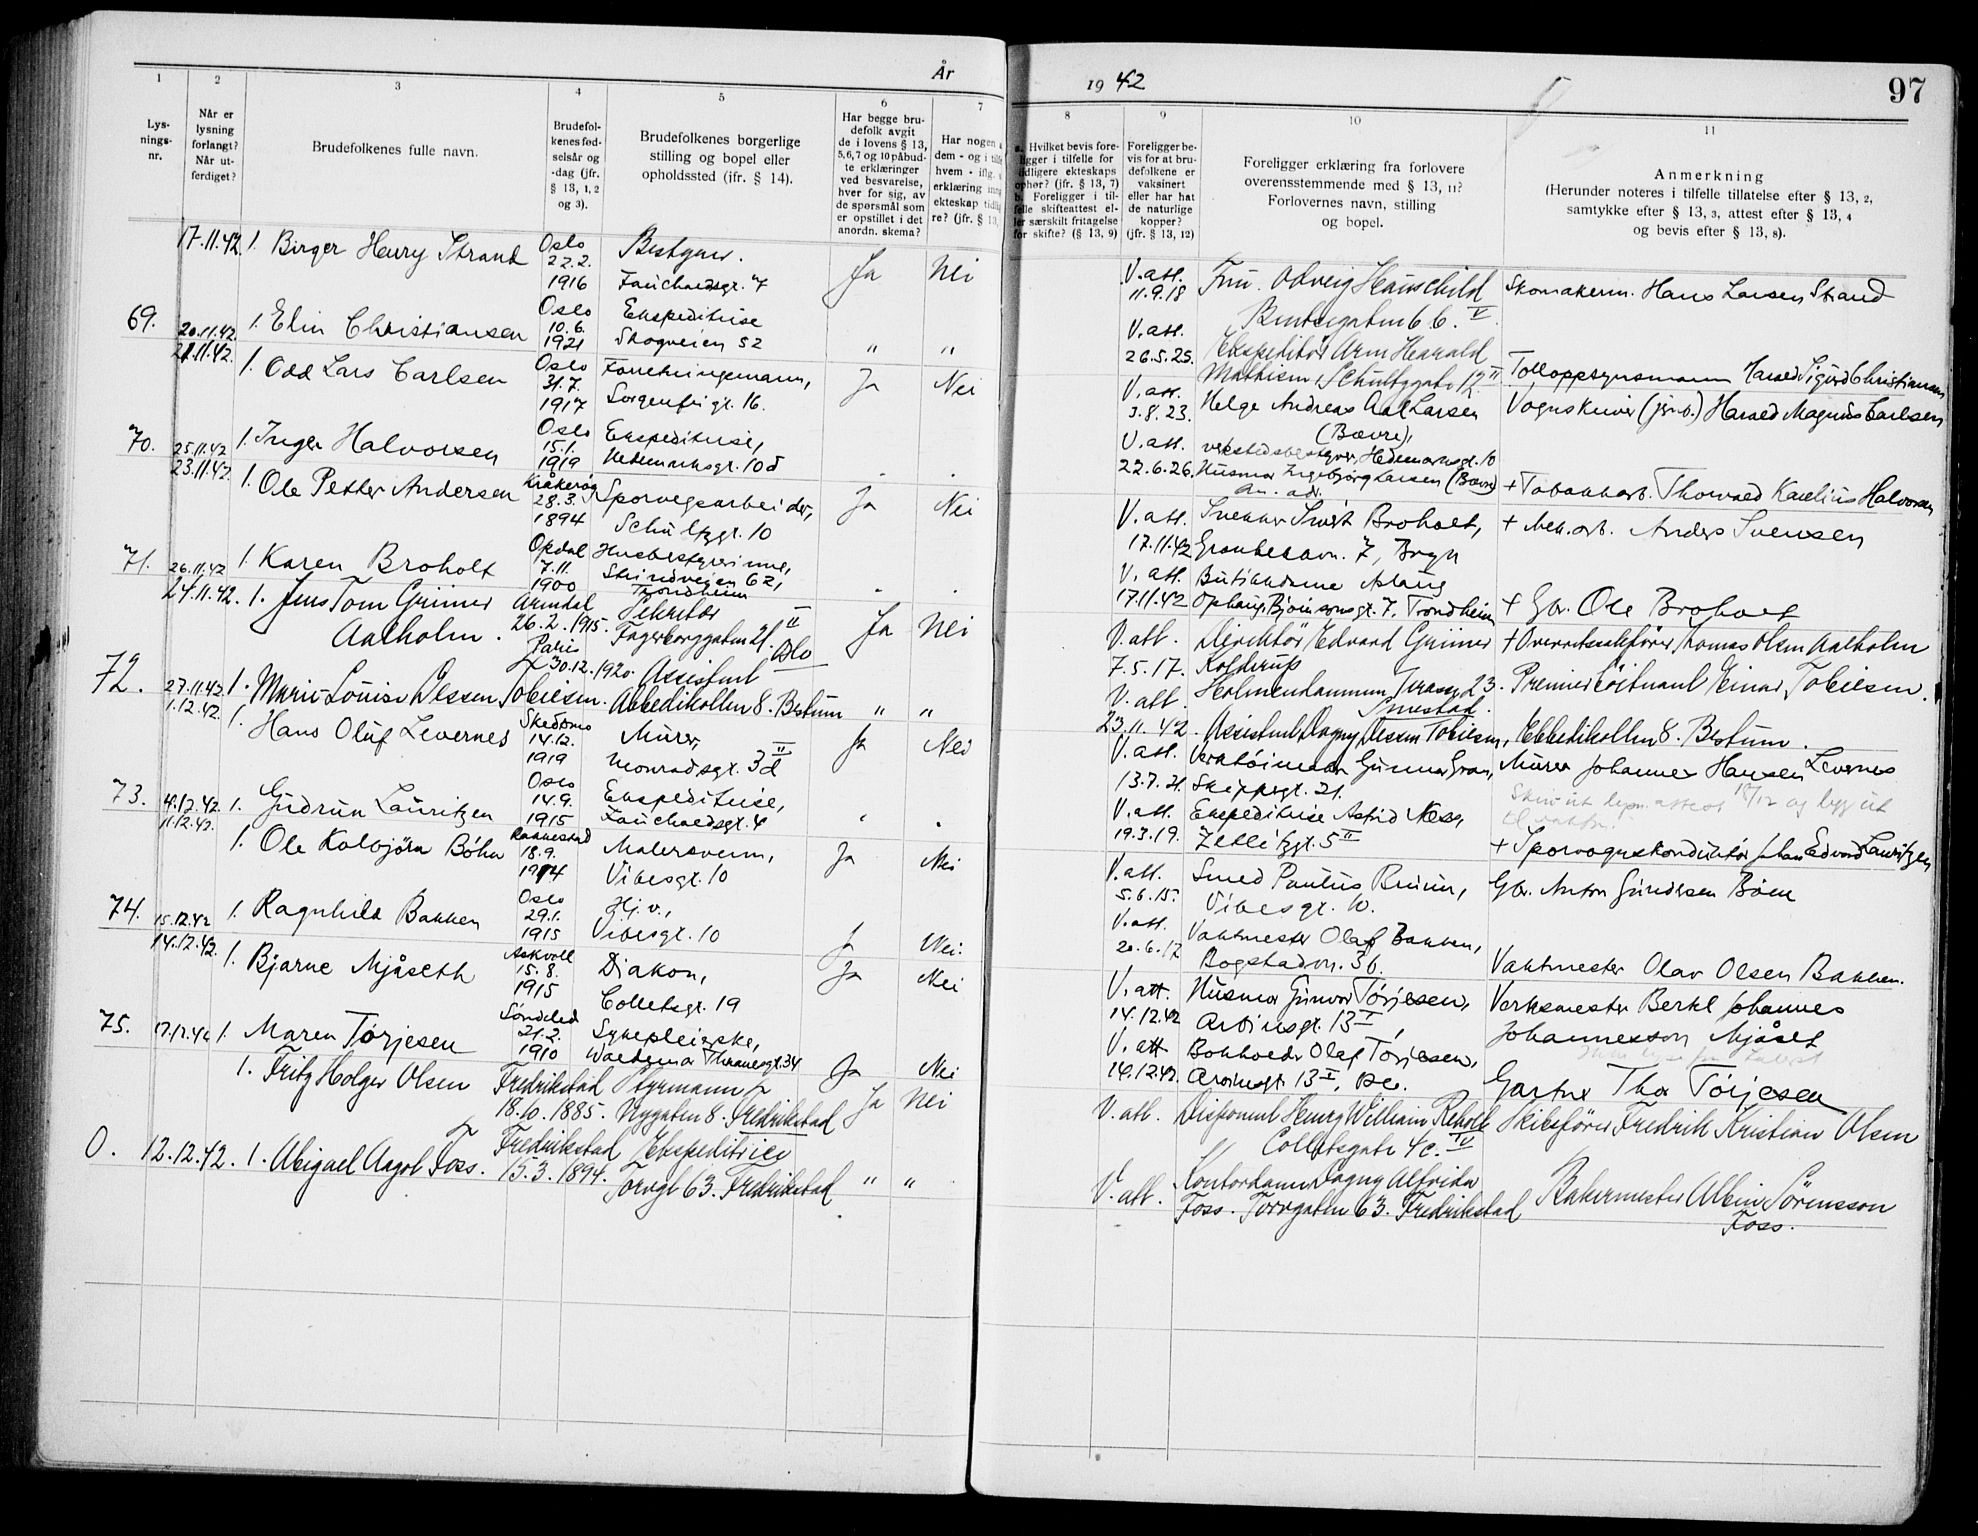 År
1942
97
1
2
3
4
5
6
7
8
9
10
11
Lys-
nings-
nr.
Når er
lysning
forlangt?
Når ut-
ferdiget?
Brudefolkenes fulle navn.
Brudefol-
kenes fød-
selsår og
-dag (jfr.
§ 13, 1, 2
og 3).
Brudefolkenes borgerlige
stilling og bopel eller
opholdssted (jfr. § 14).
Har begge bru-
defolk avgit
de i lovens § 13,
5, 6, 7 og 10 påbud-
te erklæringer
ved besvarelse,
hver for sig, av
de spørsmål som
er opstillet i det
anordn. skema?
Har nogen
dem - og i
hvem - iflg.
erklæring
ekteskap
re? (jfr. § 13,
a. Hvilket bevis fore-
ligger i tilfelle for
tidligere ekteskaps
ophør? (jfr. § 13, 7)
b. Foreligger i til-
felle skifteattest el-
ler særskilt fritagelse
for skifte? (§ 13, 9)
Foreligger be-
vis for at bru-
defolkene er
vaksinert
eller har hat
de naturlige
kopper?
(jfr. § 13, 12)
Foreligger erklæring fra forlovere
overensstemmende med § 13, 11?
Forlovernes navn, stilling
og bopel.
Anmerkning
(Herunder noteres i tilfelle tillatelse efter § 13, 2,
samtykke efter § 13, 3, attest efter § 13, 4
og bevis efter § 13, 8).
17.11.42. 1. Birger Henry Strand Oslo 22.2. 1916 Bestyrer. Fauchaldsgt. 7 Ja Nei
V. att. 11.9.18 Fru Hauschild Skomakerm. Hans Larsen Strand
69. 20.11.42. 1. Elin Christiansen Oslo 10.6. 1921 Ekspeditrise Skogveien 52 " "
V. att. 26.5.25. Ekspeditør Arm Harald Mathisen, Schultzgate 12 II Tolloppsynsmann Harald Sigurd Christiansen
21.11.42. 1. Odd Lars Carlsen Oslo 31.7. 1917 Forretningsmann, Sorgenfrigt. 16. Ja Nei
V. att. 3.8.23. Helge Andreas Larsen (Bævre), verkstedsbestyrer, Hedemarksgt. 10 Vognskriver (jernb.) Harald Magnus Carlsen
70. 25.11.42 1. Inger Halvorsen Oslo 15.1. 1919 Ekspeditrise, Hedemarksgt. 10d
V. att. 22.6.26. Husmor Ingebjørg Larsen (Bævre) + Tobakkarb. Thorvald Karelius Halvorsen
23.11.42. 1. Ole Petter Andersen Kråkerøy 28.3. 1894 Sporveisarbeider, Schultzgt. 10 Ja Nei
V. att. 17.11.42 Snekker Broholt, 7, Bryn + Mek. arb. Anders Svensen
71. 26.11.42 1. Karen Broholt Opdal 7.11. 1900 Husbestyrerinne, Strindveien 62, Trondheim
V. att. 17.11.42 Aslaug Ophaug, Bjørnsonsgt. 7, Trondheim + Gbr. Ole Broholt
24.11.42. 1. Jens Tom Grüner Aalholm. Arendal 26.2.1915. Sekretær Fagerborggaten 21. II Oslo Ja Nei
V. att. 7.5.17. Direktør Edvard Grüner Kolderup Holmendammen Terasse 23. Smestad. + Overrettssakfører Thomas Olsen Aalholm
72. 27.11.42. 1. Marie-Louise Dessen Tobiesen. Paris 30.12.1920. Assistent Abbedikollen 8. Bestum " "
V. att. 23.11.42. Assistent Dagny Dessen Tobiesen, Abbedikollen 8. Bestum. Premierløitnant Einar Tobiesen.
1.12.42. 1. Hans Oluf Levernes Skedsmo 14.12. 1919 Murer, Monradsgt. 3d II Ja Nei
V. att. 13.7.21. Gunnar Gran, Skippergt. 21. Murer Johannes Hansen Levernes
73. 4.12.42. 1. Gudrun Lauritzen Oslo 14.9. 1915 Ekspeditrise, Fauchaldsgt. 4
V. att. 19.3.19. Ekspeditrise Astrid Næss, Zetlitzgt. 5 II + Sporvognskonduktør Johan Edvard Lauritzen
11.12.42. 1. Ole Kolbjørn Böhn Rakkestad 18.9. 1914 Malersvenn, Vibesgt. 10 Ja Nei
V. att. 5.6.15. Smed Paulus Bruun, Vibesgt. 10. Gbr. Anton Gundersen Böen
74. 15.12.42 1. Ragnhild Bakken Oslo 29.1. 1915 Hj. v., Vibesgt. 10 Ja Nei.
V. att. 20.6.17 Vaktmester Olaf Bakken, Bogstadvn. 36. Vaktmester Olav Olsen Bakken.
14.12.42. 1. Bjarne Mjåseth Askvoll 15.8. 1915 Diakon, Colletsgt. 19 Ja Nei
V. att. 14.12.42 Husmor Gunvor Tørjesen, Arbinsgt. 13 I, Verksmester Berkl Johannes Johannesson Mjåset
75. 17.12.42 1. Maren Tørjesen Söndeled 21.2. 1910 Sykepleierske, Waldemar Thranesgt. 34 Ja Nei
V. att 14.12.42. Bokholder Olaf Tørjesen, Arbinsgt. 13 I, Gartner Thor Tørjesen
1. Fritz Holger Olsen Fredrikstad 18.10.1885. Styrmann Nygaten 8. Fredrikstad Ja Nei
V. att. Disponent Henry William Colletsgate 4c. IV Skibsfører Fredrik Kristian Olsen
0. 12.12.42. 1. Abigael Aagot Foss. Fredrikstad 15.3.1894. Ekspeditrice Torvgt 63. Fredrikstad " "
V. att. Kontordame Dagny Alfrida Foss. Torvgaten 63. Fredrikstad Bakermester Albin Sörensson Foss.